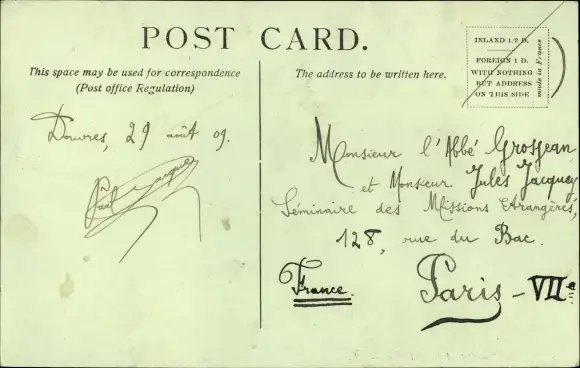 POST CARD.
This space may be used for correspondence
(Post office Regulation)
The address to be written here.
INLAND 1/2 D.
FOREIGN 1 D.
WITH NOTHING
BUT ADDRESS
ON THIS SIDE
made in France
Douvres, 29 août 09.
Monsieur l'Abbé Grosjean
et Monsieur Jules Jacquey
Séminaire des Missions Etrangères,
128, rue du Bac.
France.
Paris - VII